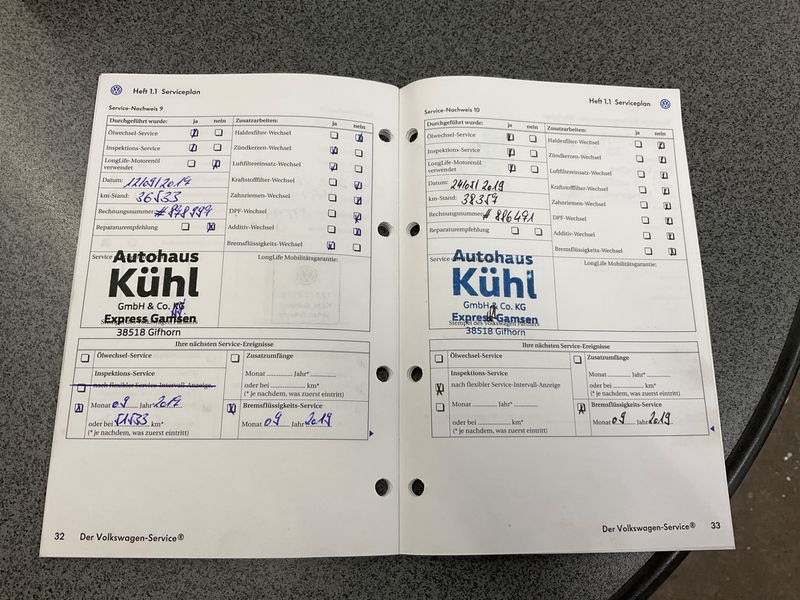 Heft 1.1 Serviceplan
Service-Nachweis 9
Durchgeführt wurde: ja nein
Ölwechsel-Service
Inspektions-Service
LongLife-Motorenöl
verwendet
Datum:
km-Stand: 36533
Rechnungsnummer
Reparaturempfehlung
Zusatzarbeiten: ja nein
Haldexfilter-Wechsel
Zündkerzen-Wechsel
Luftfiltereinsatz-Wechsel
Kraftstofffilter-Wechsel
Zahnriemen-Wechsel
DPF-Wechsel
Additiv-Wechsel
Bremsflüssigkeits-Wechsel
LongLife Mobilitätsgarantie:
Autohaus
Kühl
GmbH & Co. KG
Express Gamsen
38518 Gifhorn
Ihre nächsten Service-Ereignisse
Ölwechsel-Service
Inspektions-Service
nach flexibler Service-Intervall-Anzeige
Monat 09 Jahr* 2017
oder bei 51533 km*
(* je nachdem, was zuerst eintritt)
Zusatzumfänge
Monat Jahr*
oder bei km*
(* je nachdem, was zuerst eintritt)
Bremsflüssigkeits-Service
Monat 09 Jahr 2019
32 Der Volkswagen-Service®
Heft 1.1 Serviceplan
Service-Nachweis 10
Durchgeführt wurde: ja nein
Ölwechsel-Service
Inspektions-Service
LongLife-Motorenöl
verwendet
Datum: 24/05/2019
km-Stand: 38359
Rechnungsnummer # 886491
Reparaturempfehlung
Zusatzarbeiten: ja nein
Haldexfilter-Wechsel
Zündkerzen-Wechsel
Luftfiltereinsatz-Wechsel
Kraftstofffilter-Wechsel
Zahnriemen-Wechsel
DPF-Wechsel
Additiv-Wechsel
Bremsflüssigkeits-Wechsel
LongLife Mobilitätsgarantie:
Autohaus
Kühl
GmbH & Co. KG
Express Gamsen
Stempel des Volkswagen Partners
38518 Gifhorn
Ihre nächsten Service-Ereignisse
Ölwechsel-Service
Inspektions-Service
nach flexibler Service-Intervall-Anzeige
Monat Jahr*
oder bei km*
(* je nachdem, was zuerst eintritt)
Zusatzumfänge
Monat Jahr*
oder bei km*
(* je nachdem, was zuerst eintritt)
Bremsflüssigkeits-Service
Monat 09 Jahr 2019
Der Volkswagen-Service® 33